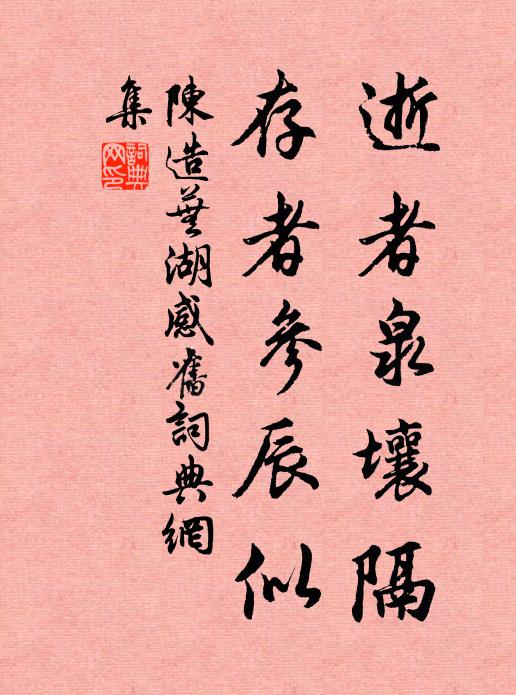 逝者泉壤隔
存者參辰似
陳造蕪湖感舊詞典網
集
詞典網印